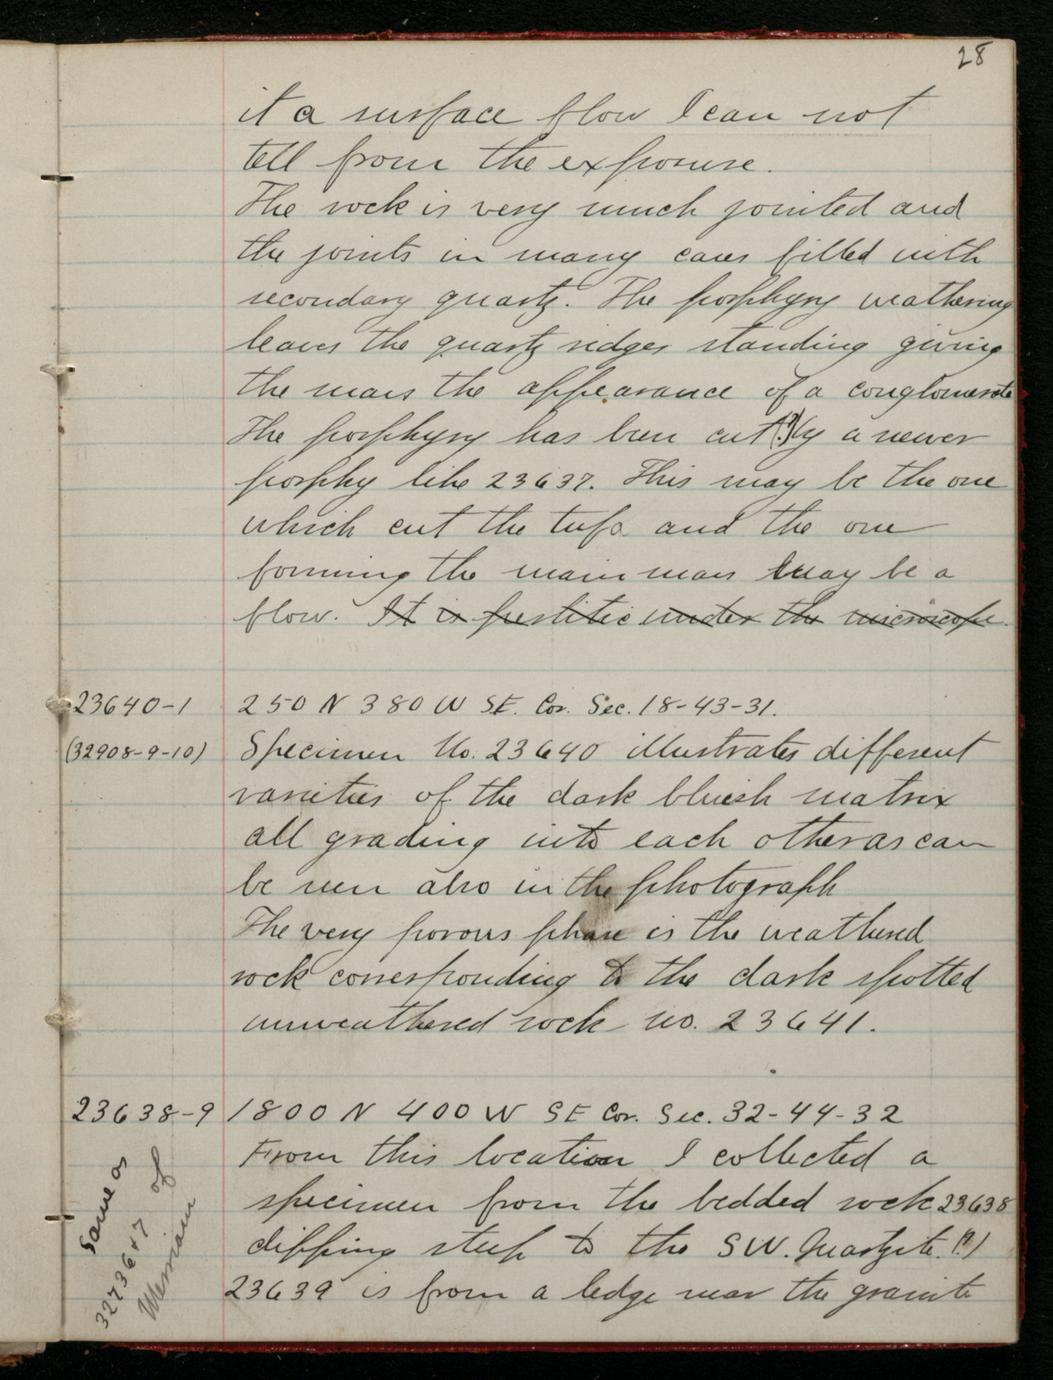 28
it a surface flow I can not
tell from the exposure.
The rock is very much jointed and
the joints in many cases filled with
secondary quartz. The porphyry weathering
leaves the quartz ridges standing giving
the mass the appearance of a conglomerate
The porphyry has been cut (?) by a newer
porphy like 23637. This may be the one
which cut the tufa and the one
forming the main mass may be a
flow. It is perlitic under the microscope.
23640-1 250 N 380 W SE. Cor. Sec. 18-43-31.
(32908-9-10) Specimen No. 23640 illustrates different
varieties of the dark bluish matrix
all grading into each other as can
be seen also in the photograph
The very porous phase is the weathered
rock corresponding to the dark spotted
unweathered rock no. 23641.
23638-9 1800 N 400 W SE Cor. Sec. 32-44-32
From this location I collected a
specimen from the bedded rock 23638
dipping steep to the SW. Quartzite. (?)
23639 is from a ledge near the granite
Same as
32736+7 of
Merriam